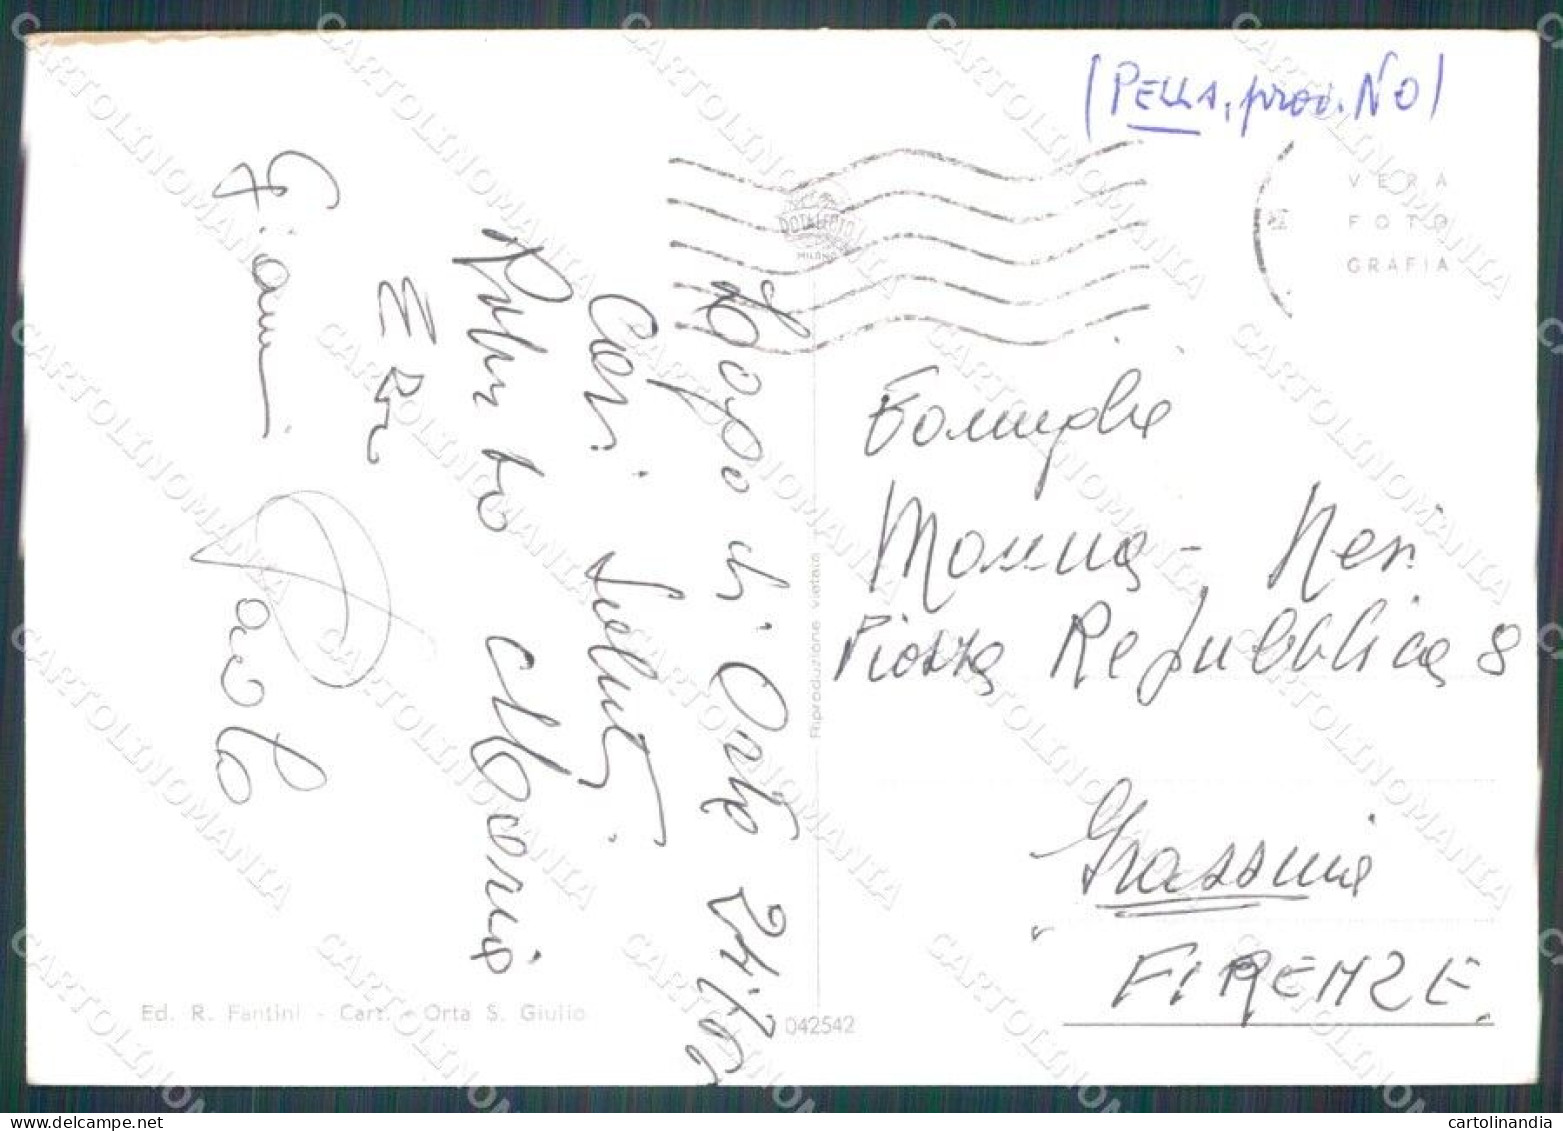 (PELLA, prov. NO)
VERA
FOTO
GRAFIA
DOTALFOTO
MILANO
Lago di Orta
Cari Saluti
Maria
Gianni
Paolo
Famiglia
Neri
Piazza Repubblica 8
Grassina
FIRENZE
Riproduzione vietata
Ed. R. Fantini - Cart. - Orta S. Giulio
042542
CARTOLINOMANIA
cartolinandia